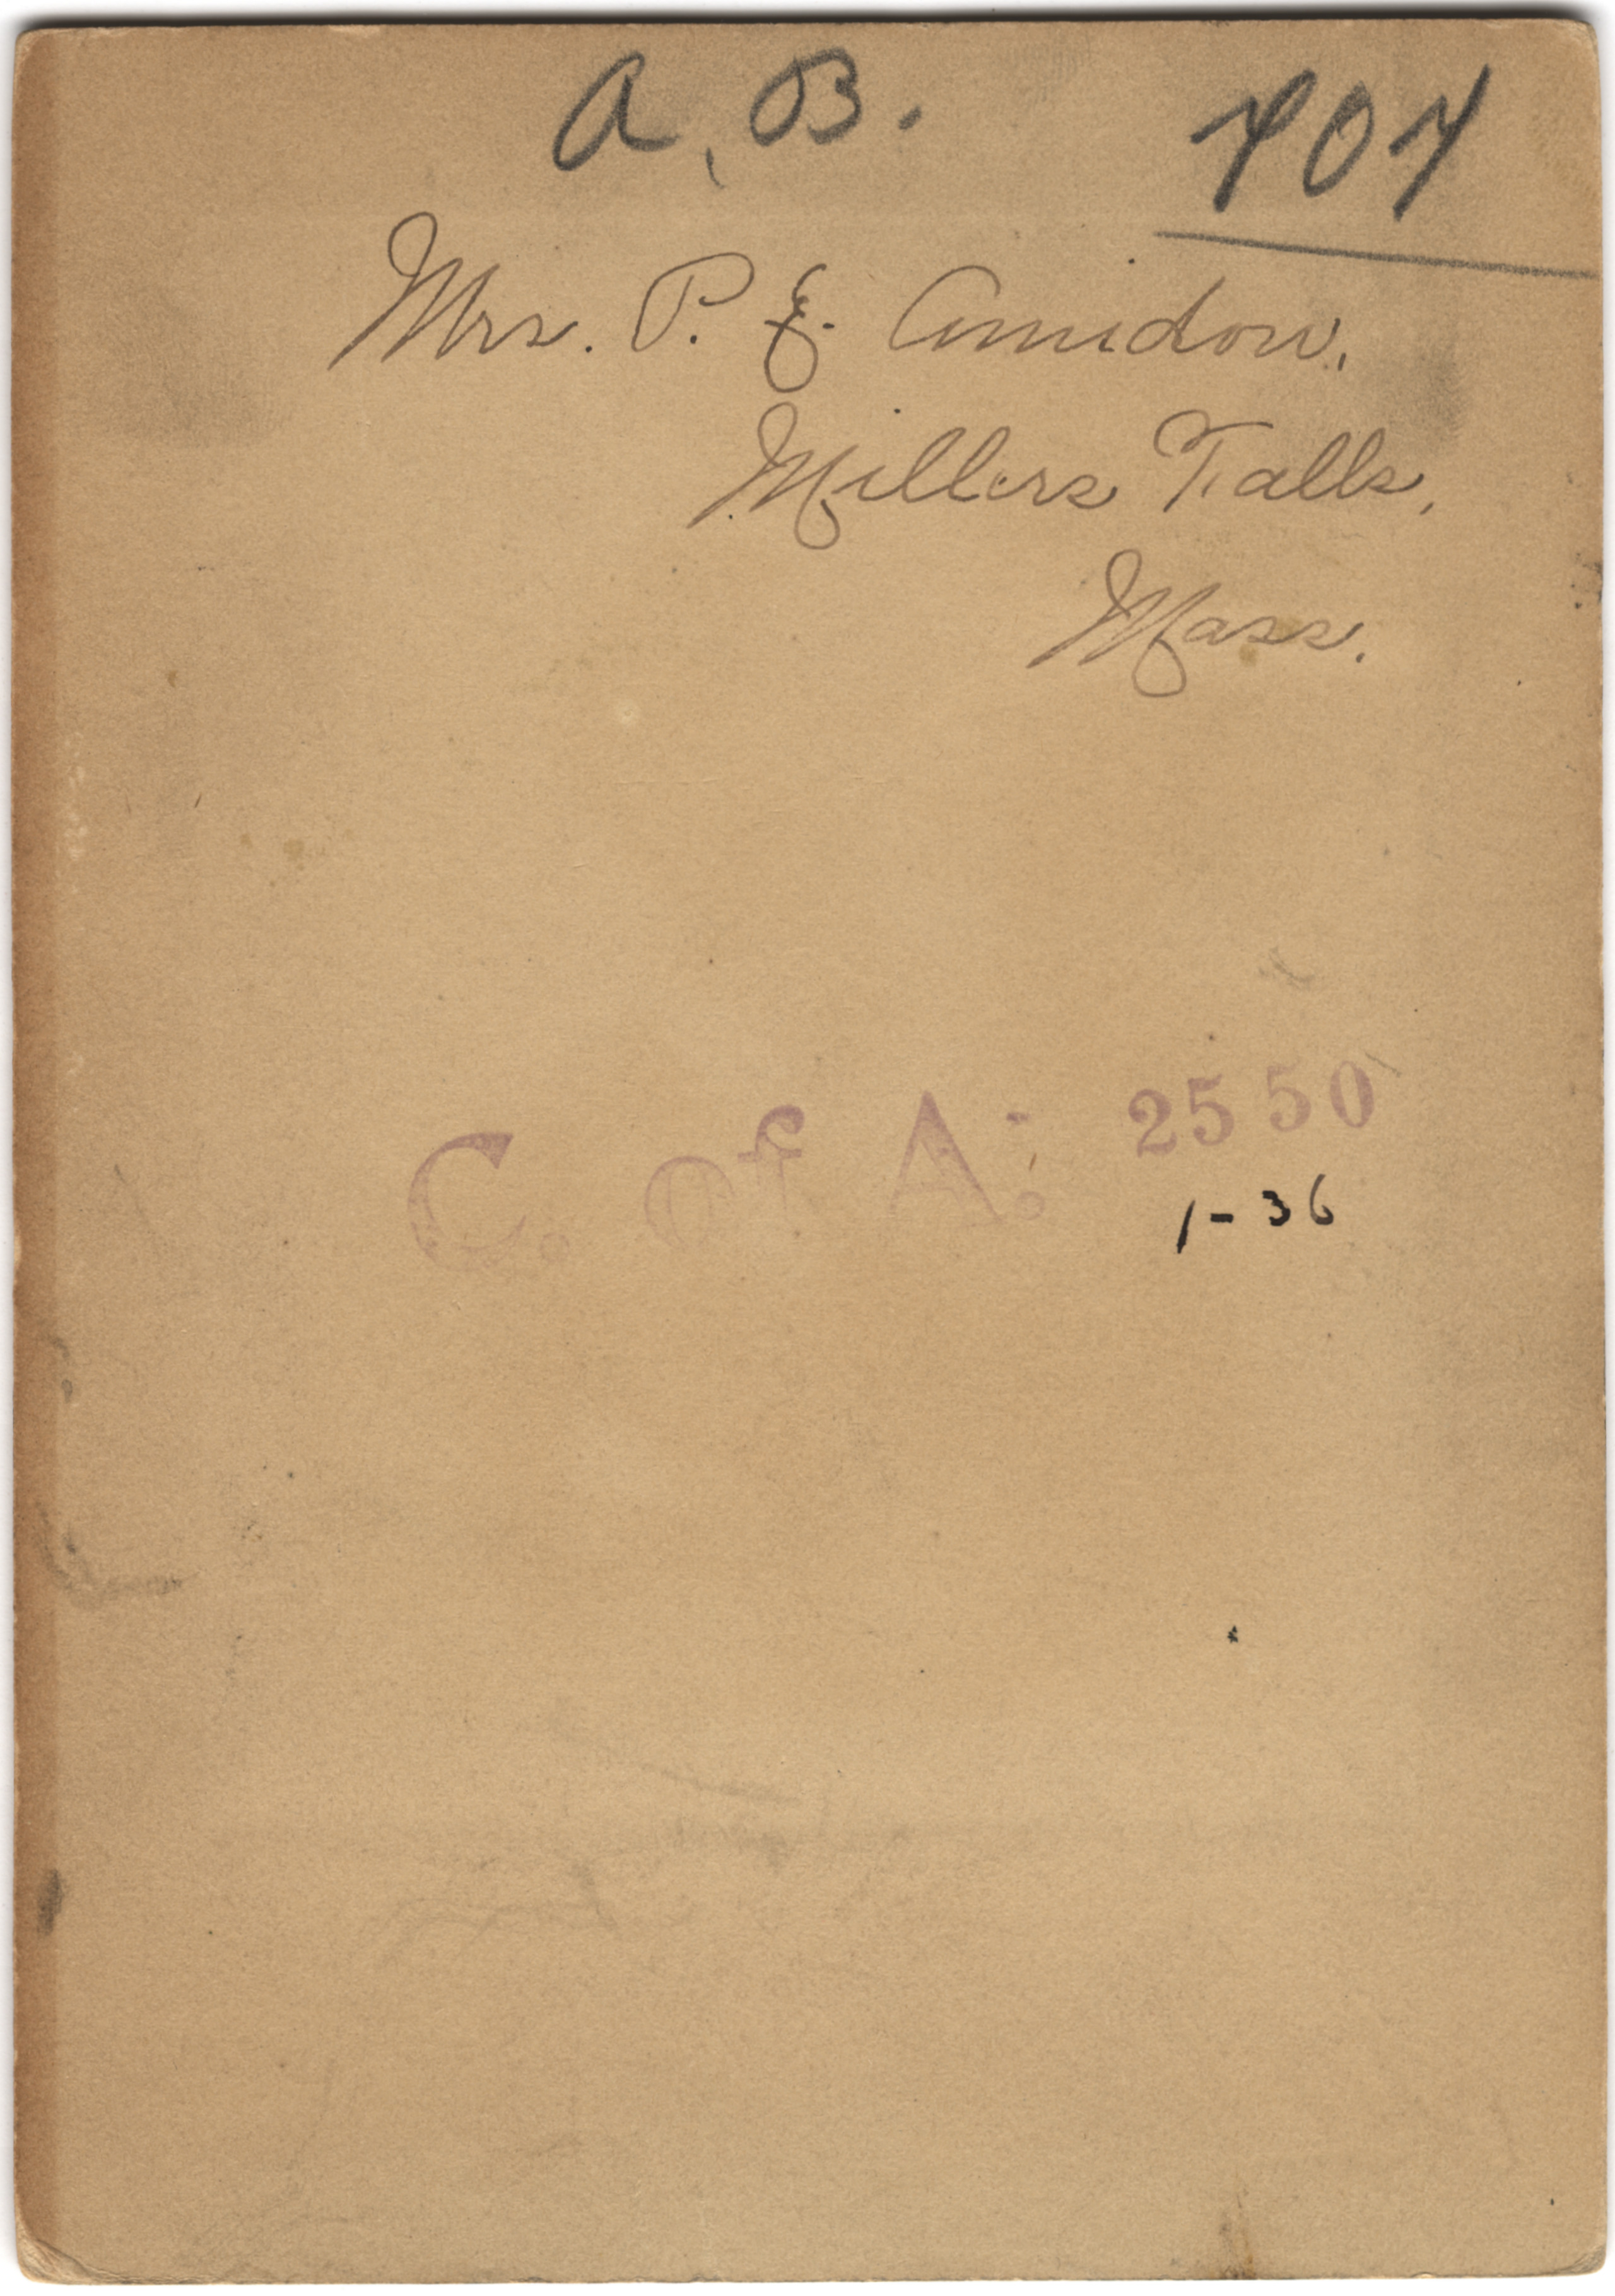 A, B. 404
Mrs. P. E. Amidon,
Millers Falls,
Mass.
C. of A. 2550
1-36